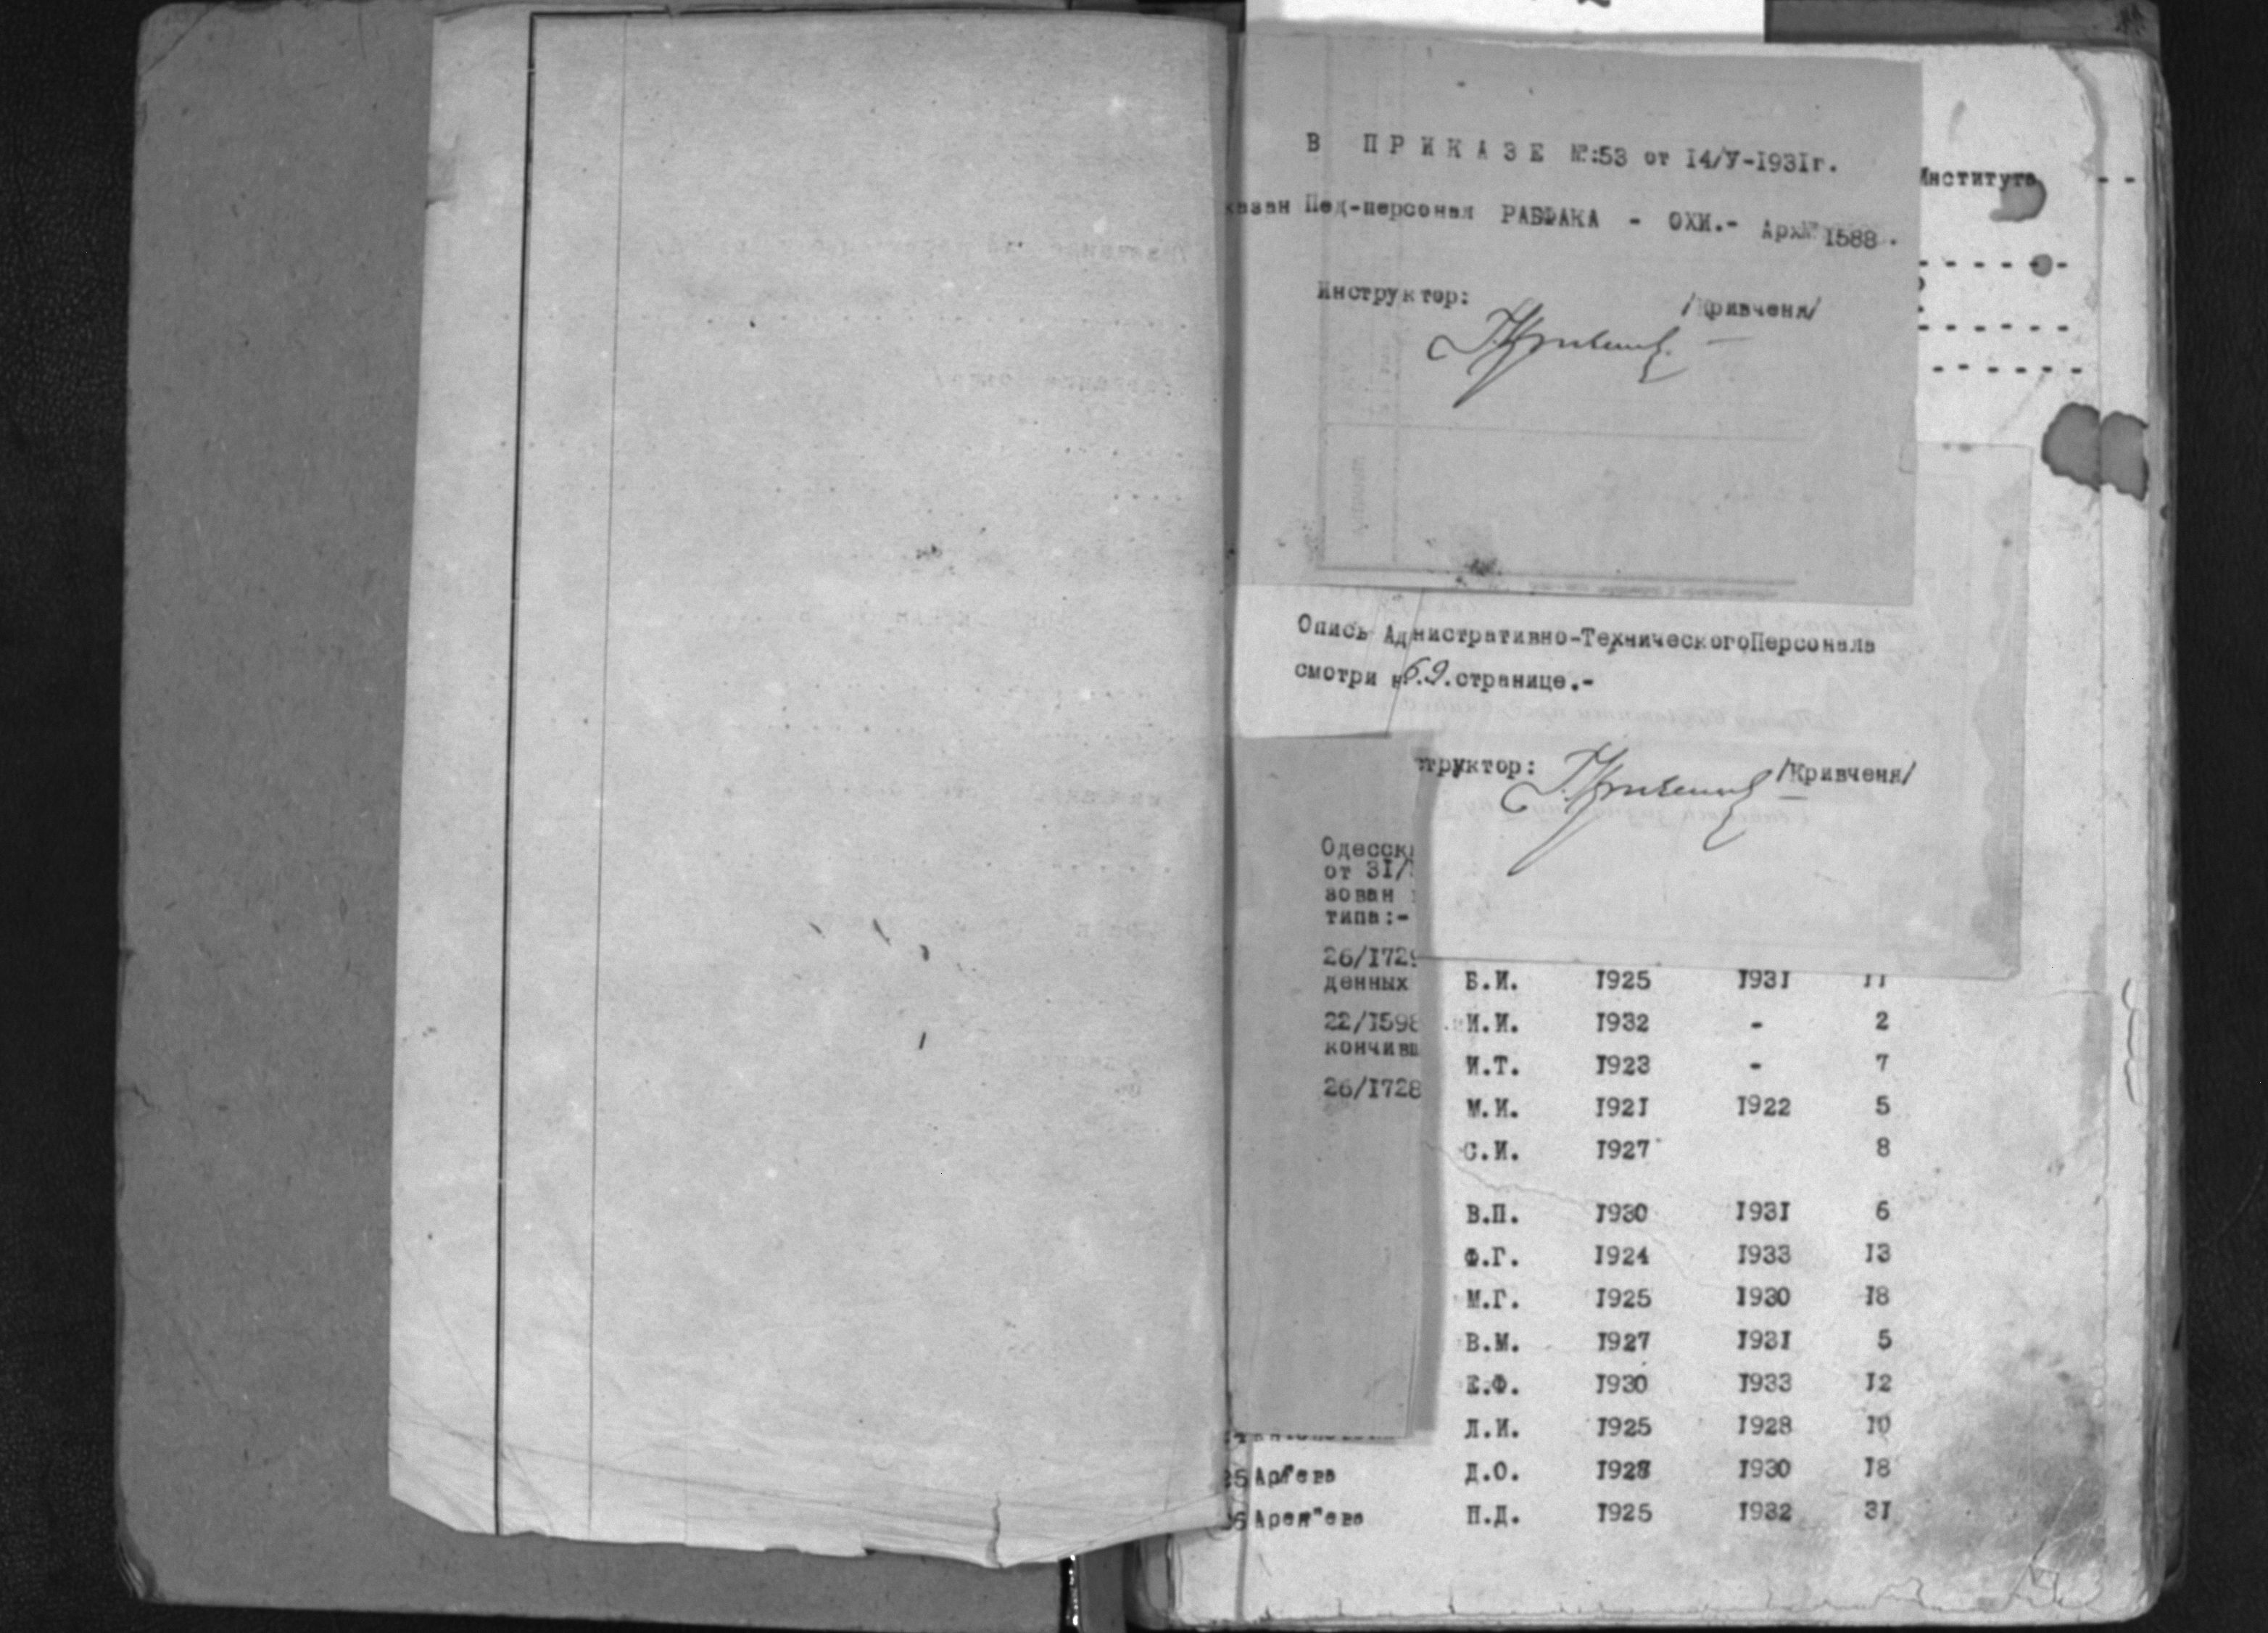 В ПРИКАЗЕ №:53 от I4/У-I93Iг.
казан Пед-персонал РАБФАКА - ОХИ.- Арх№ I588.
Института - -
Инструктор: /Кривченя/
Опись Адмнистративно-ТехническогоПерсонала
смотри н 69.странице.-
труктор: /Кривченя/
Одесск
от 3I/
зован
типа:-
26/I729
денных
22/I598
кончивш
26/I728
Б.И. I925 I93I II
И.И. I932 - 2
И.Т. I923 - 7
М.И. I92I I922 5
С.И. I927 8
В.П. I930 I93I 6
Ф.Г. I924 I933 I3
М.Г. I925 I930 I8
В.М. I927 I93I 5
Е.Ф. I930 I933 I2
Л.И. I925 I928 I0
25 Ар"ева Д.О. I928 I930 I8
26 Арен"ева Н.Д. I925 I932 3I